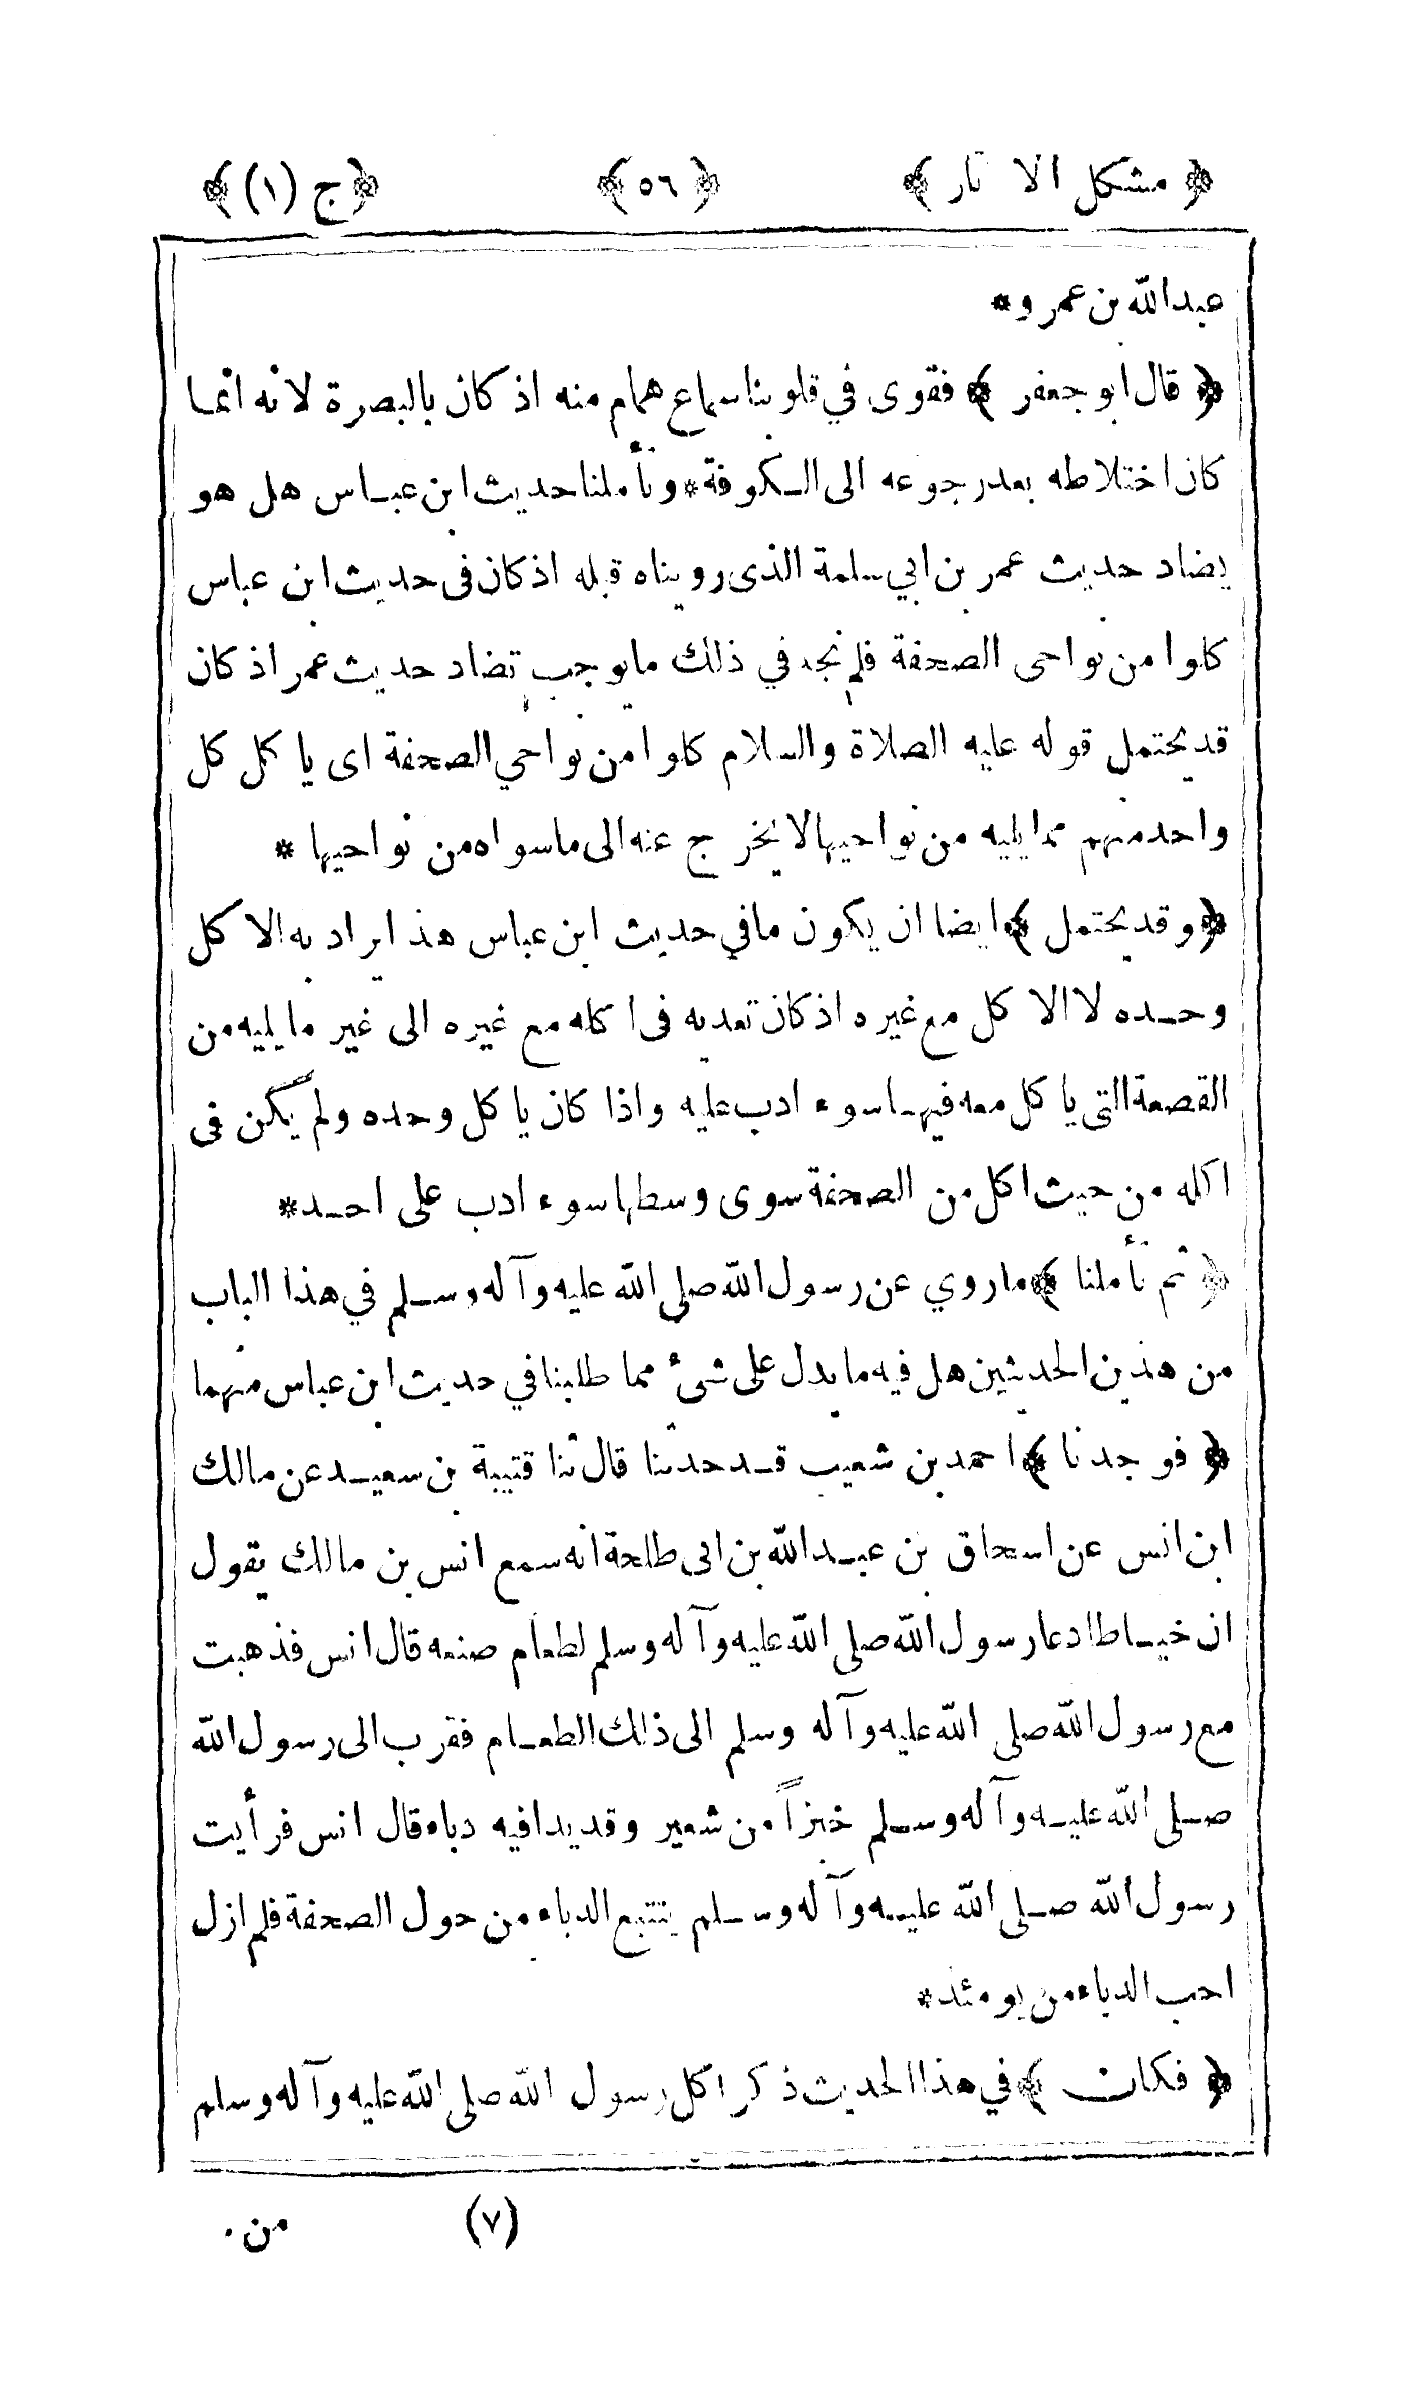 ﴿ مشكل الآثار ﴾ ﴿ ٥٦ ﴾ ﴿ ج (١) ﴾
عبدالله بن عمرو *
﴿ قال ابو جعفر ﴾ فقوى في قلوبنا سماع همام منه اذ كان بالبصرة لانه انما
كان اختلاطه بعد رجوعه الى الكوفة * وتأملنا حديث ابن عباس هل هو
يضاد حديث عمر بن ابي سلمة الذى رويناه قبله اذ كان فى حديث ابن عباس
كلوا من نواحى الصحفة فلم نجد في ذلك ما يوجب تضاد حديث عمر اذ كان
قد يحتمل قوله عليه الصلاة والسلام كلوا من نواحي الصحفة اى يا كل كل
واحد منهم مما يليه من نواحيها لا يخرج عنه الى ما سواه من نواحيها *
﴿ وقد يحتمل ﴾ ايضا ان يكون ما في حديث ابن عباس هذا يراد به الا كل
وحده لا الا كل مع غيره اذ كان تعديه فى اكله مع غيره الى غير ما يليه من
القصعة التى يا كل معه فيها سوء ادب عليه واذا كان يا كل وحده ولم يكن فى
اكله من حيث اكل من الصحفة سوى وسطها سوء ادب على احد *
﴿ ثم تأملنا ﴾ ما روي عن رسول الله صلى الله عليه وآله وسلم في هذا الباب
من هذين الحديثين هل فيه ما يدل على شىء مما طلبنا في حديث ابن عباس منهما
﴿ فوجدنا ﴾ احمد بن شعيب قد حدثنا قال ثنا قتيبة بن سعيد عن مالك
ابن انس عن اسحاق بن عبد الله بن ابى طلحة انه سمع انس بن مالك يقول
ان خياطا دعا رسول الله صلى الله عليه وآله وسلم لطعام صنعه قال انس فذهبت
مع رسول الله صلى الله عليه وآله وسلم الى ذلك الطعام فقرب الى رسول الله
صلى الله عليه وآله وسلم خبزاً من شعير وقديدا فيه دباء قال انس فرأيت
رسول الله صلى الله عليه وآله وسلم يتتبع الدباء من حول الصحفة فلم ازل
احب الدباء من يومئذ *
﴿ فكان ﴾ في هذا الحديث ذكر اكل رسول الله صلى الله عليه وآله وسلم
(٧) من